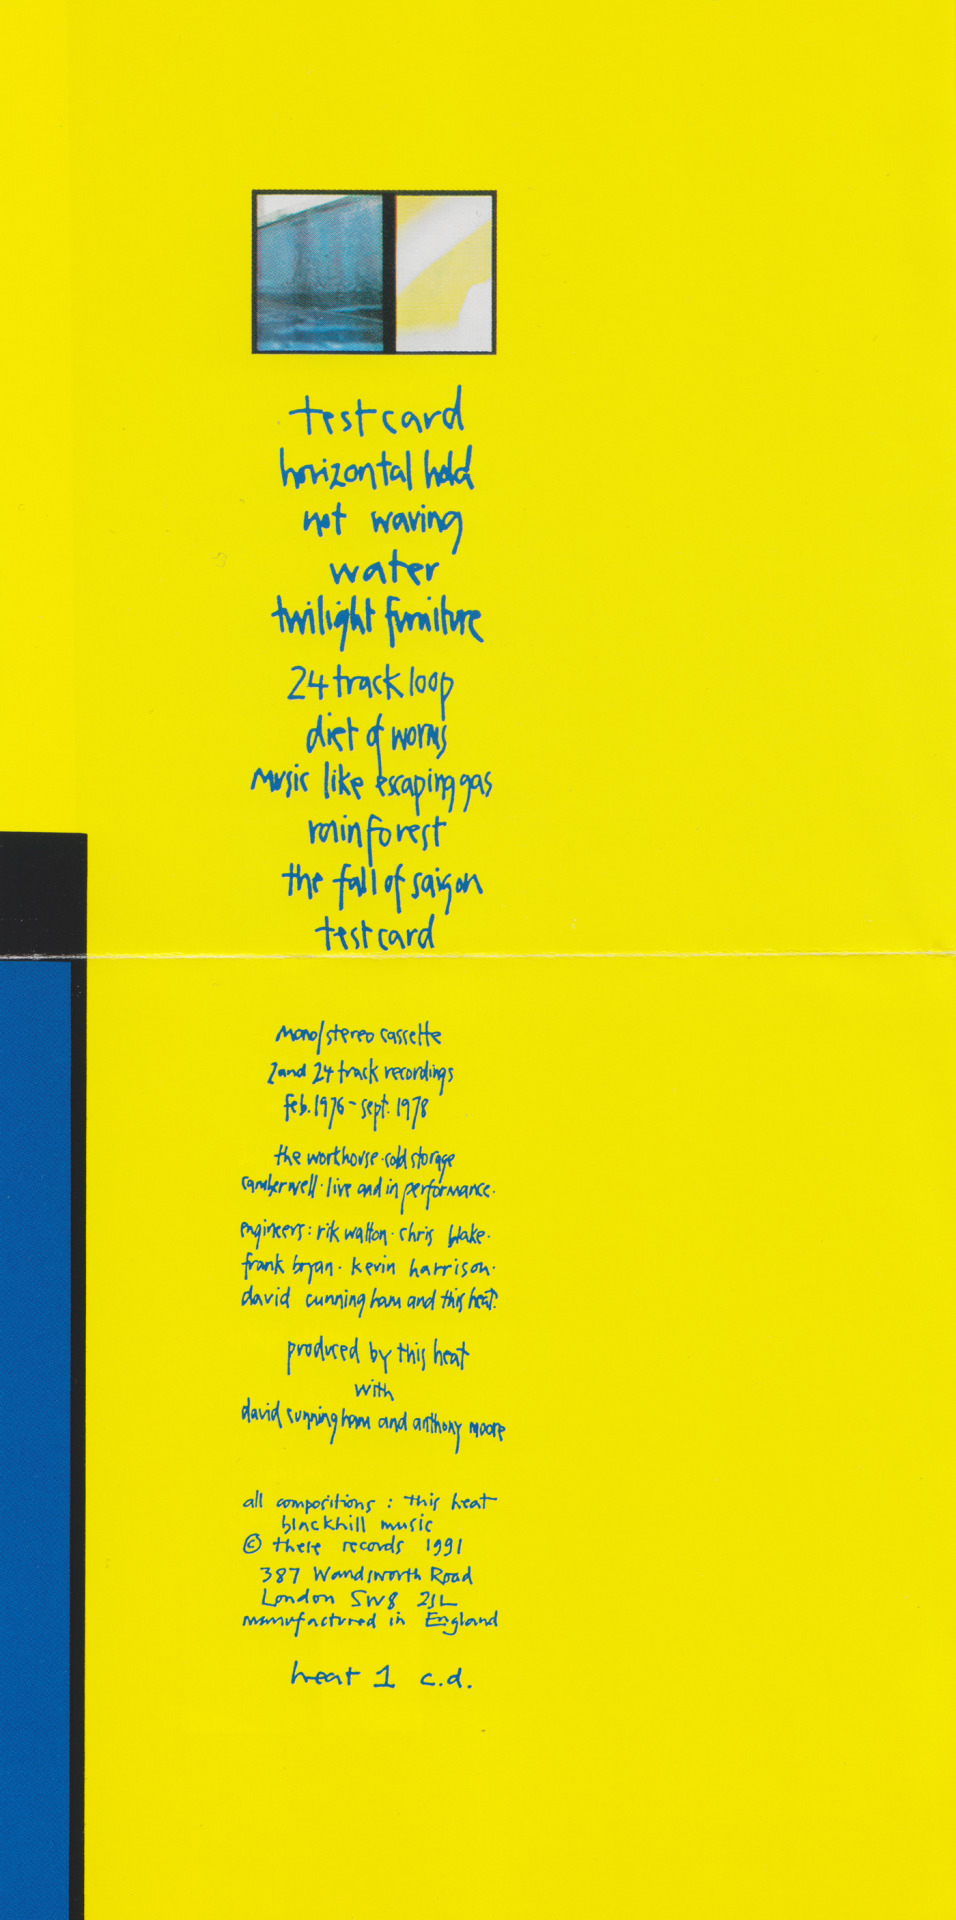 test card
horizontal hold
not waving
water
twilight furniture
24 track loop
diet of worms
music like escaping gas
rainforest
the fall of saigon
test card
mono/stereo cassette
2 and 24 track recordings
feb. 1976 - sept. 1978
the workhouse · cold storage
camberwell · live and in performance.
engineers: rik walton · chris blake ·
frank bryan · kevin harrison ·
david cunningham and this heat.
produced by this heat
with
david cunningham and anthony moore
all compositions : this heat
blackhill music
© these records 1991
387 Wandsworth Road
London SW8 2JL
manufactured in England
heat 1 c.d.